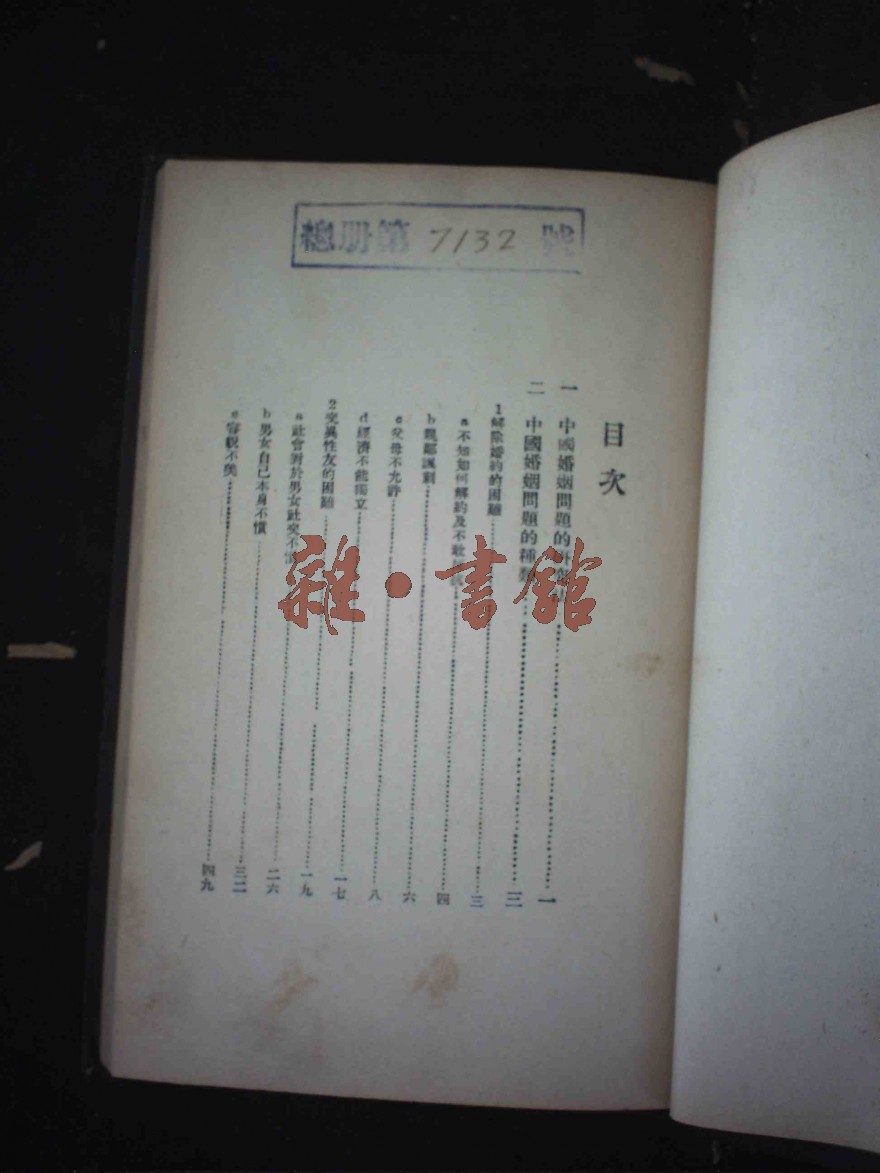 總册第 7132 號
目次
一 中國婚姻問題的……一
二 中國婚姻問題的種類……三
1 解除婚約的困難……三
a 不知如何解約及不敢……四
b 親鄰諷刺……六
c 父母不允許……八
d 經濟不能獨立……一七
2 交異性友的困難……一九
a 社會對於男女社交不慣……二六
b 男女自己本身不慣……三二
c 容貌不美……四九
雜·書館